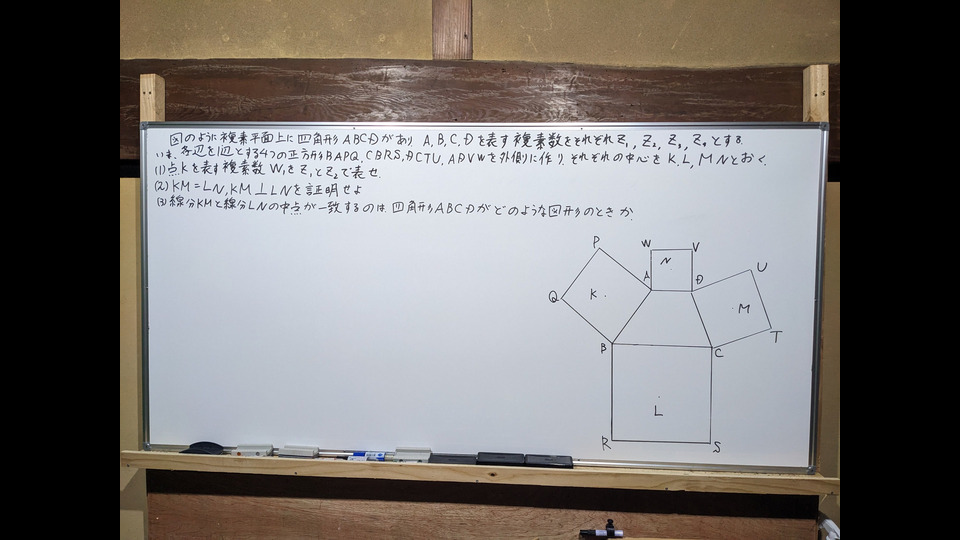 図のように複素平面上に四角形ABCDがあり A,B,C,Dを表す複素数をそれぞれZ₁,Z₂,Z₃,Z₄とする
いま、各辺を1辺とする4つの正方形BAPQ,CBRS,DCTU,ADVWを外側に作り それぞれの中心をK,L,M,Nとおく.
(1)点Kを表す複素数W₁をZ₁とZ₂で表せ
(2)KM=LN,KM⊥LNを証明せよ
(3)線分KMと線分LNの中点が一致するのは.四角形ABCDがどのような図形のときか.
P
W
V
N
A
D
U
Q
K
M
T
B
C
L
R
S